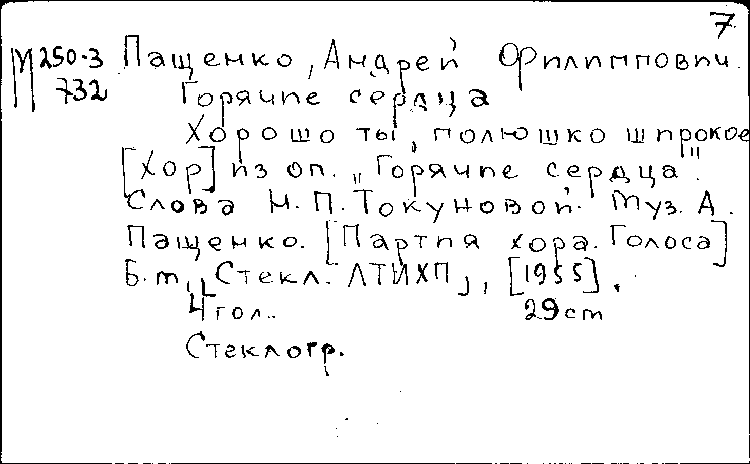 7
М 250-3 Пащенко, Андрей Филиппович.
732 Горячие сердца
Хорошо ты, полюшко широкое
[Хор] из оп. „Горячие сердца".
Слова Н. П. Токуновой. Муз. А.
Пащенко. [Партия хора. Голоса]
Б.м., „Стекл. ЛТИХП", [1955].
4 гол.. 29 cm
Стеклогр.